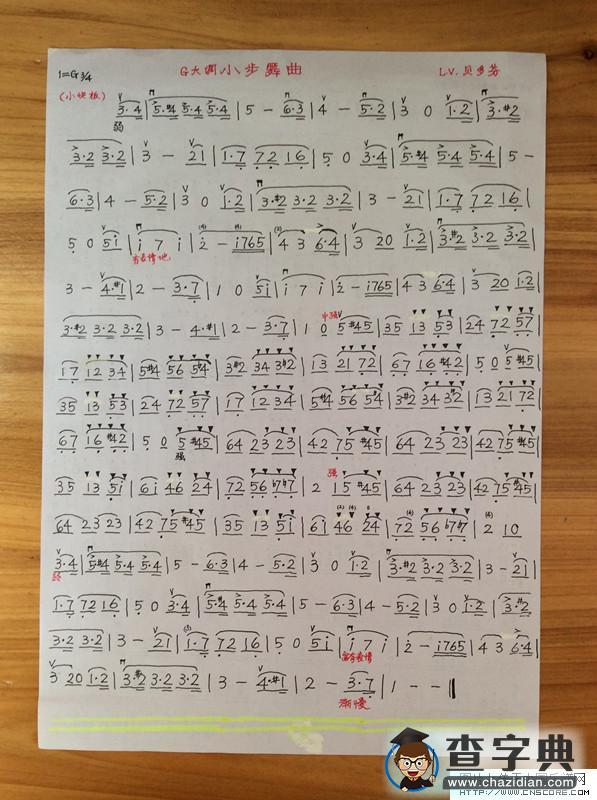 1=G 3/4 G大调小步舞曲 L.V. 贝多芬
(小快板) 3·4 | 5·#4 5·4 5·4 | 5 - 6·3 | 4 - 5·2 | 3 0 1·2 | 3·#2
弱
3·2 3·2 | 3 - 21 | 1·7 72 16 | 5 0 3·4 | 5·#4 5·4 5·4 | 5 -
6·3 | 4 - 5·2 | 3 0 1·2 | 3·#2 3·2 3·2 | 3 - 21 | 1·7 72 16 |
5 0 5i | i 7 i | 2 - i765 | 4 3 6·4 | 3 20 1·2 | 3·#2 3·2 3·2 |
3 - 4·#1 | 2 - 3·7 | 1 0 5i | i 7 i | 2 - i765 | 4 3 6·4 | 3 20 1·2 |
中强
3·#2 3·2 3·2 | 3 - 4·#1 | 2 - 3·7 | 1 0 5#45 | 35 13 53 | 24 72 57 |
17 12 34 | 5#4 56 5#4 | 3#2 34 3#2 | 13 21 72 | 67 16 #42 | 5 0 5#45 |
35 13 53 | 24 72 57 | 17 12 34 | 5#4 56 5#4 | 3#2 34 3#2 | 13 21 72 |
67 16 #42 | 5 0 5#45 | 64 23 23 | 42 75 #45 | 64 23 23 | 42 75 #45 |
强
35 13 5i | 6i 46 24 | 72 56 | 2 15 #45 | 64 23 23 | 42 75 #45 |
64 23 23 | 42 75 #45 | 35 13 5i | 6i 46 24 | 72 56 | 2 10
3·4 | 5#4 5·4 5·4 | 5 - 6·3 | 4 - 5·2 | 3 0 1·2 | 3·#2 3·2 3·2 | 3 - 21 |
1·7 72 16 | 5 0 3·4 | 5·#4 5·4 5·4 | 5 - 6·3 | 4 - 5·2 | 3 0 1·2 | 3·#2
3·2 3·2 | 3 - 21 | 1·7 72 16 | 5 0 5i | i 7 i | 2 - i765 | 4 3 6·4 |
3 20 1·2 | 3·#2 3·2 3·2 | 3 - 4·#1 | 2 - 3·7 | 1 - - ‖
渐慢
查字典
www.chazidian.com
HTTP://WWW.CNSCORE.COM